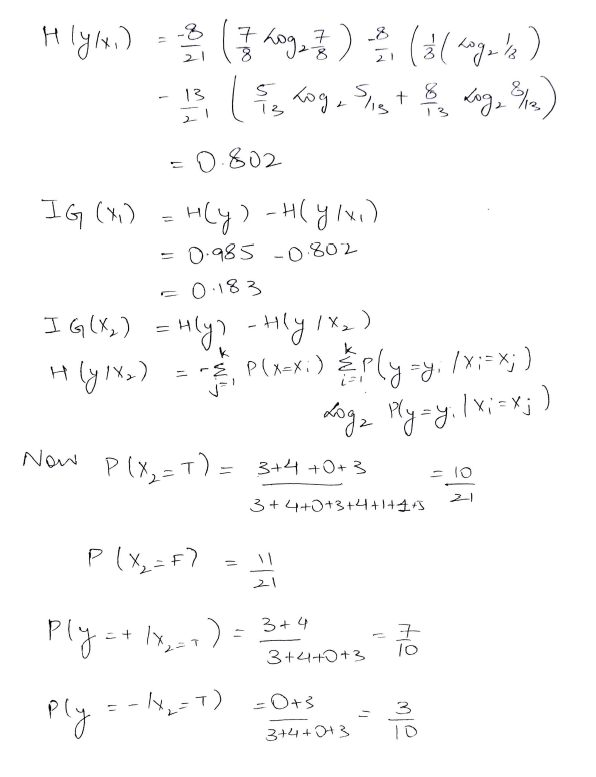 H(y/x₁) = -8/21 (7/8 Log₂ 7/8) -8/21 (1/3 (Log₂ 1/8)
- 13/21 (5/13 Log₂ 5/13 + 8/13 Log₂ 8/13)
= 0.802
IG (X₁) = H(y) - H(y/x₁)
= 0.985 - 0.802
= 0.183
IG(X₂) = H(y) - H(y/X₂)
H(y/X₂) = - Σ_{j=1}^{k} P(X=Xi) Σ_{i=1}^{k} P(y=yi /Xi=Xj)
Log₂ P(y=yi | Xi=Xj)
Now P(X₂=T) = (3+4+0+3)/(3+4+0+3+4+1+1+5) = 10/21
P(X₂=F) = 11/21
P(y=+ /X₂=T) = (3+4)/(3+4+0+3) = 7/10
P(y = - /X₂=T) = (0+3)/(3+4+0+3) = 3/10